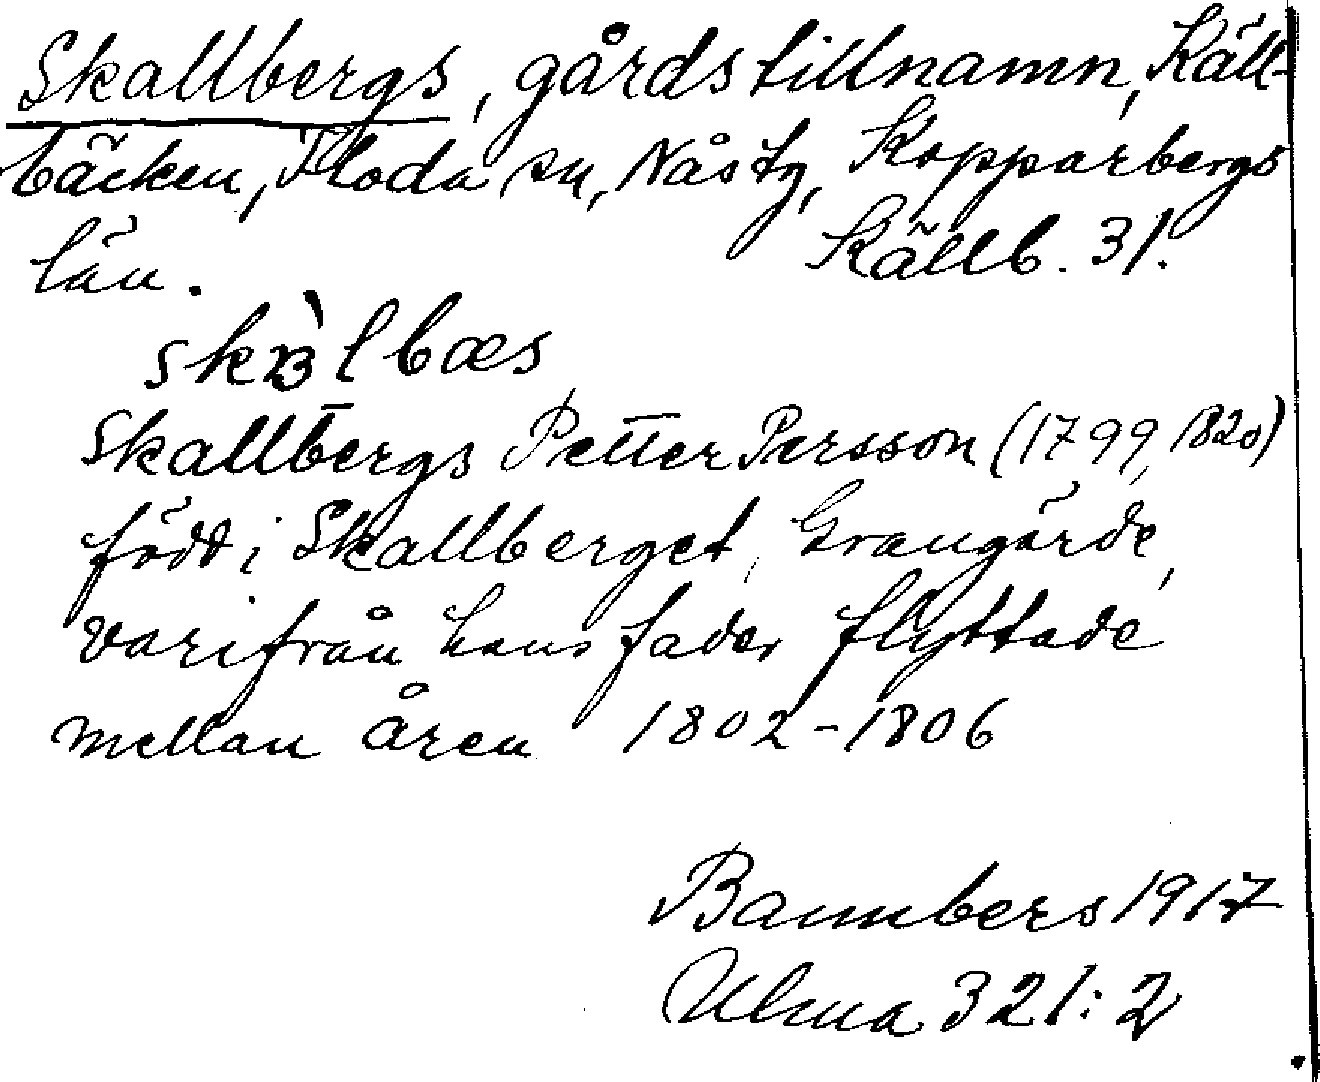 Skallbergs, gårdstillnamn, Käll-
bäcken, Floda sn, Nås tg, Kopparbergs
län. Källb. 31.
Skallbergs Petter Persson (1799, 1820)
född i Skallberget, Grangärde,
varifrån hans fader flyttade
mellan åren 1802-1806
Bannbers 1917
Ulma 321:2